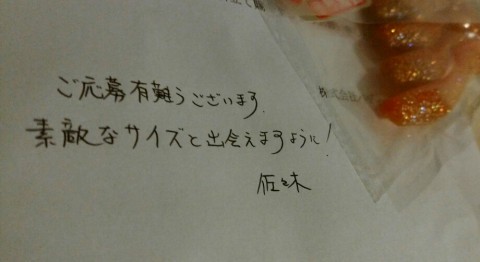 ご応募有難うございます.
素敵なサイズと出会えますように!
佐々木
株式会社